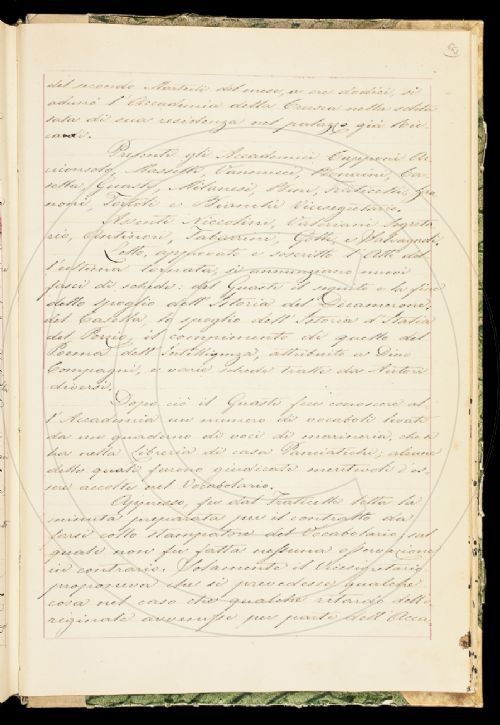 del secondo Martedì del mese, a ore dodici, si
adunò l'Accademia della Crusca nella solita
sala di sua residenza nel palazzo già Ric
cardi.
Presenti gli Accademici Capponi Ar
ciconsolo, Masselli, Vannucci, Bonaini, Ca
sella, Guasti, Milanesi, Bini, Fraticelli,
Tortoli e Bianchi Vicesegretario.
Assenti Niccolini, Valeriani Segreta
rio, Antinori, Tabarrini, Gotti, e Salvagnoli.
Letto, approvato e soscritto l'Atto del
l'ultima tornata, si annunziano nuovi
fasci di schede: dal Guasti il seguito e la fine
dello spoglio dell'Istoria del
dal Casella, lo spoglio dell'Istoria d'Italia
del Porzio, il compimento di quello del
Poema dell'Intelligenza, attribuito a Dino
Compagni, e varie schede tratte da Autori
diversi.
Dopo ciò il Guasti fece conoscere al
l'Accademia un numero di vocaboli levati
da un quaderno di voci di marineria, che è
ha nella Libreria di casa Panciatichi, alcune
delle quali furono giudicate meritevoli d'es
sere accolte nel Vocabolario.
Appresso, fu dal Fraticelli letta la
minuta preparata per il contratto da
farsi collo stampatore del Vocabolario; sul
quale non fu fatta nessuna osservazione
in contrario. Solamente il Vicesegretario
proponeva che si prevedesse qualche
cosa nel caso che qualche ritardo dell'o
riginale avvenisse per parte dell'Acca